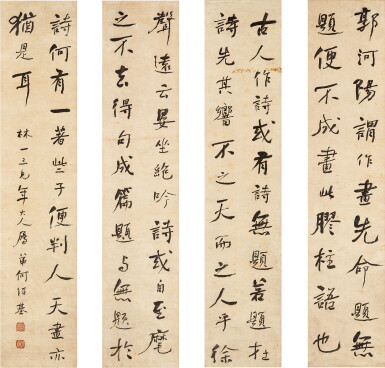 郭河陽謂作畫先命題無
題便不成畫此膠柱語也
古人作詩或有詩無題若題在
詩先其響不之天而之人乎徐
聲遠云晏坐絶吟詩或自至麾
之不去得句成篇題與無題於
詩何有一著些子便判人天畫亦
猶是耳
林一三兄年大人屬 弟何紹基